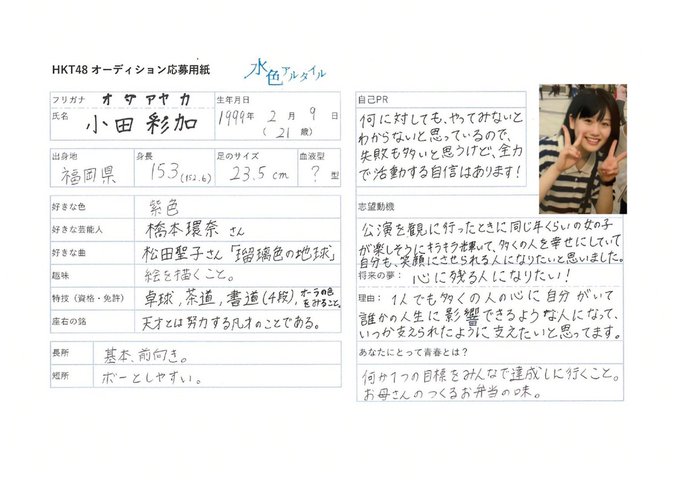 HKT48 オーディション応募用紙
水色アルタイル
フリガナ オダアヤカ
氏名 小田彩加
生年月日
1999年 2月 9日
(21歳)
出身地 福岡県
身長 153(152.6)
足のサイズ 23.5cm
血液型 ?型
好きな色 紫色
好きな芸能人 橋本環奈さん
好きな曲 松田聖子さん「瑠璃色の地球」
趣味 絵を描くこと。
特技(資格・免許) 卓球,茶道,書道(4段),オーラの色をみること。
座右の銘 天才とは努力する凡才のことである。
長所 基本、前向き。
短所 ボーとしやすい。
自己PR
何に対しても、やってみないと
わからないと思っているので、
失敗も多いと思うけど、全力
で活動する自信はあります!
志望動機
公演を観に行ったときに同じ年くらいの女の子
が楽しそうにキラキラ輝いて、多くの人を幸せにしていて
自分も、笑顔にさせられる人になりたいと思いました。
将来の夢: 心に残る人になりたい!
理由: 1人でも多くの人の心に自分がいて
誰かの人生に影響できるような人になって、
いつか支えられたように支えたいと思ってます。
あなたにとって青春とは?
何か1つの目標をみんなで達成しに行くこと。
お母さんのつくるお弁当の味。